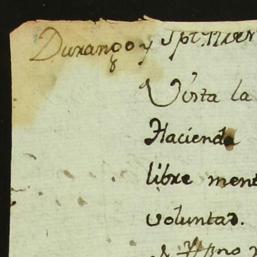 Durango y Spt.
Vista la
Hacienda
libre ment
voluntad.